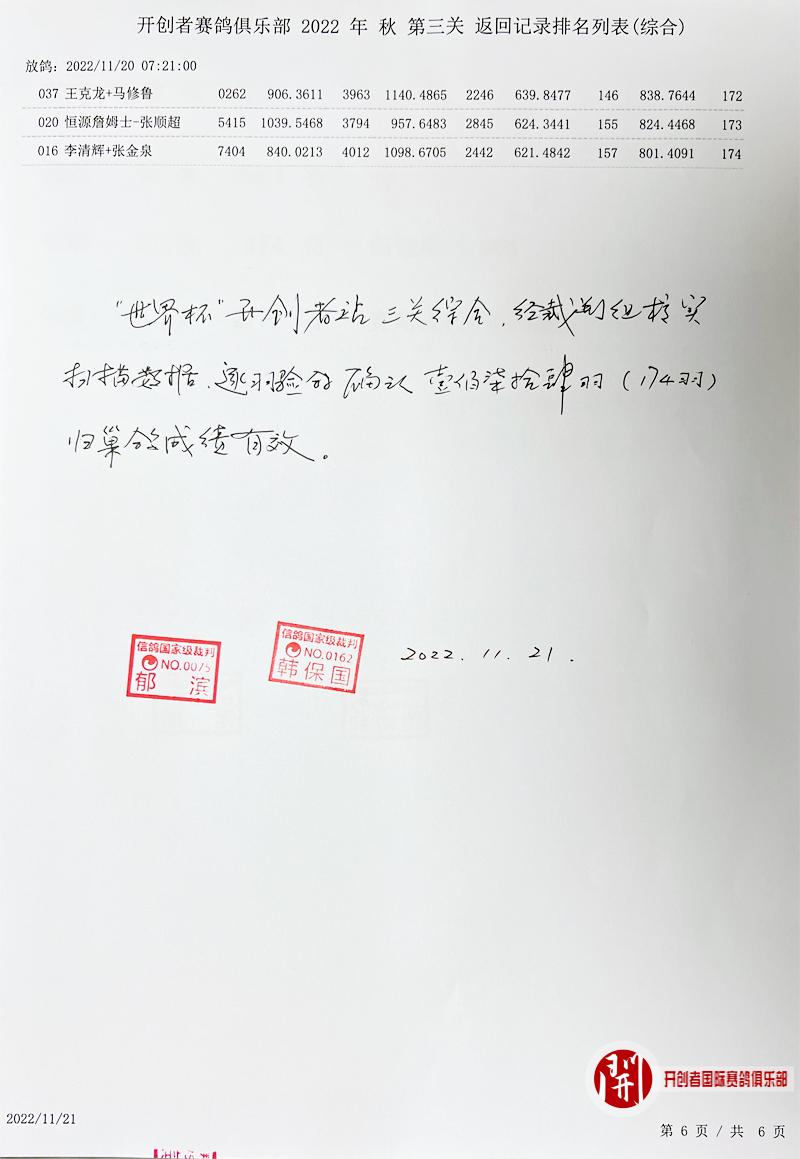 开创者赛鸽俱乐部 2022 年 秋 第三关 返回记录排名列表(综合)
放鸽: 2022/11/20 07:21:00
037 王克龙+马修鲁 0262 906.3611 3963 1140.4865 2246 639.8477 146 838.7644 172
020 恒源詹姆士-张顺超 5415 1039.5468 3794 957.6483 2845 624.3441 155 824.4468 173
016 李清辉+张金泉 7404 840.0213 4012 1098.6705 2442 621.4842 157 801.4091 174
“世界杯”开创者站三关综合,经裁判组核实
扫描数据、逐羽验的确认壹佰柒拾肆羽(174羽)
归巢的成绩有效。
信鸽国家级裁判
NO.0075
郁 滨
信鸽国家级裁判
NO.0162
韩保国
2022.11.21.
開
开创者国际赛鸽俱乐部
2022/11/21
第 6 页 / 共 6 页